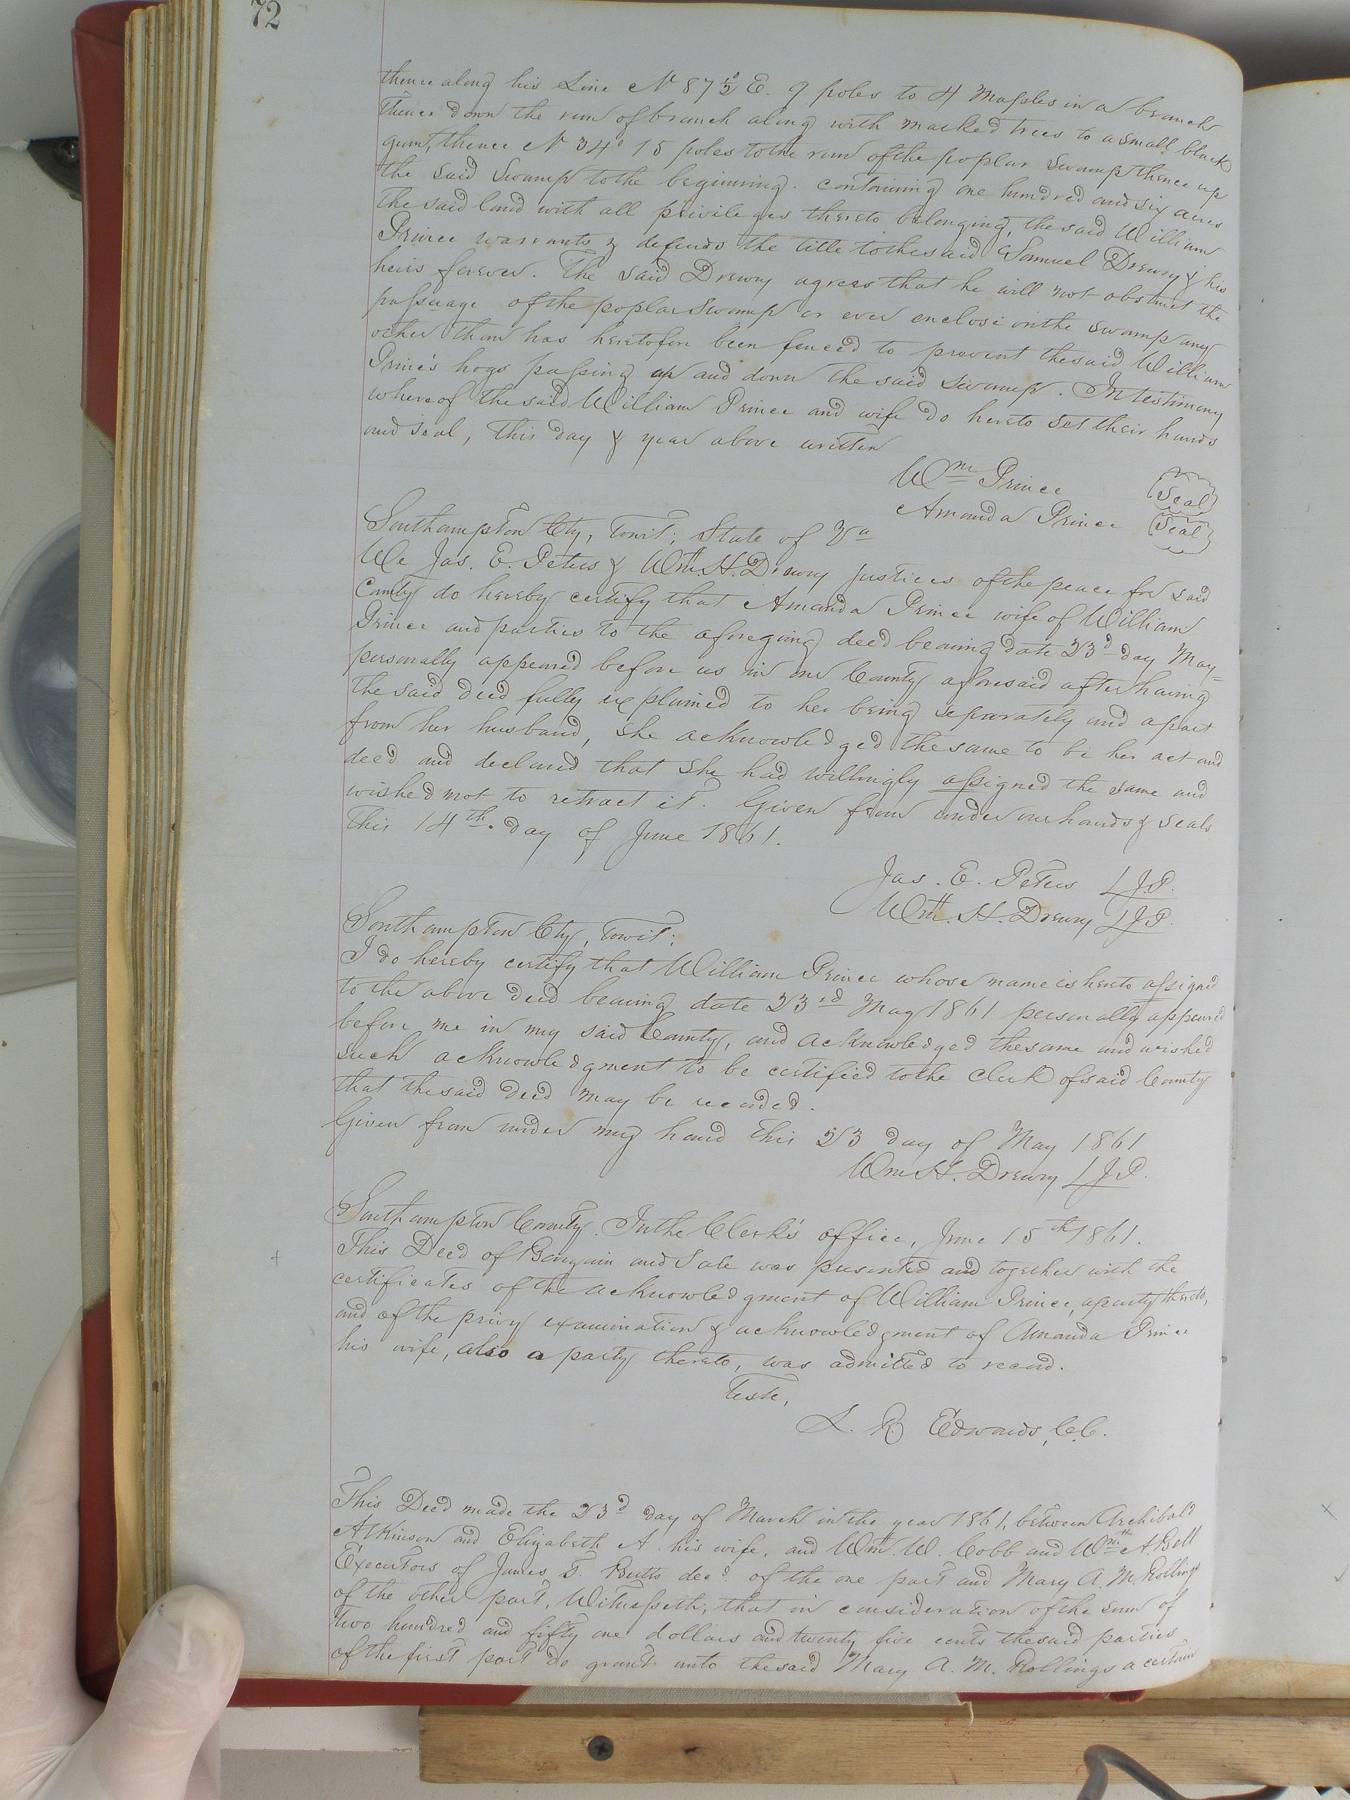 72
thence along his Line N 87½° E. 9 poles to 4 Maples in a branch
thence down the run of branch along with marked trees to a small black
gum, thence N 34° 15 poles to the run of the poplar Swamp thence up
the said Swamp to the beginning. containing one hundred and six acres
the said land with all privileges thereto belonging, the said William
Prince warrants & defends the title to the said Samuel Drewry & his
heirs forever. The said Drewry agrees that he will not obstruct the
passuage of the poplar Swamp or ever enclose on the swamp any
other than has heretofore been fenced to prevent the said William
Prince's hogs passing up and down the said swamp. In testimony
whereof the said William Prince and wife do hereto set their hands
and seal, this day & year above written
Wm Prince Seal
Amanda Prince Seal
Southampton Cty, Towit; State of Va
We Jas. E. Peters & Wm. H. Drewry justices of the peace for said
County do hereby certify that Amanda Prince wife of William
Prince and parties to the aforegoing deed bearing date 23d day May
personally appeared before us in our County aforesaid after having
the said deed fully explained to her being seperately and apart
from her husband, she acknowledged the same to be her act and
deed and declared that she had willingly assigned the same and
wished not to retract it. Given from under our hands & seals
This 14th. day of June 1861.
Jas. E. Peters J.P.
Wm. H. Drewry J.P.
Southampton Cty, Towit;
I do hereby certify that William Prince whose name is hereto assigned
to the above deed bearing date 23rd May 1861 personally appeared
before me in my said County, and acknowledged the same and wished
such acknowledgment to be certified to the Clerk of said County
that the said deed may be recorded.
Given from under my hand this 23 day of May 1861
Wm H. Drewry J.P.
Southampton County. In the Clerk's office, June 15th 1861.
This Deed of Bargain and Sale was presented and together with the
certificates of the acknowledgment of William Prince, a party thereto,
and of the privy examination & acknowledgment of Amanda Prince
his wife, also a party thereto, was admitted to record.
Teste,
L. R. Edwards, C.C.
This Deed made the 23d day of March in the year 1861, between Archibald
Atkinson and Elizabeth A. his wife, and Wm. W. Cobb and Wm A. Bell
Executors of James T. Butts decd. of the one part and Mary A. M. Rollings
of the other part, Witnesseth; that in consideration of the sum of
two hundred and fifty one dollars and twenty five cents the said parties
of the first part do grant unto the said Mary A. M. Rollings a certain